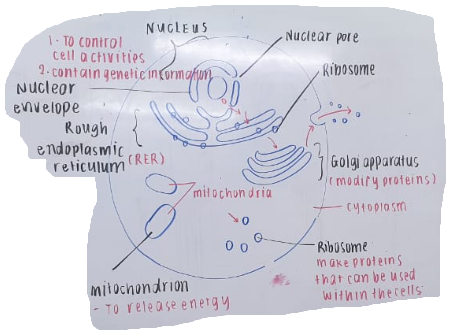 NUCLEUS
1- To control
cell activities
2- contain genetic information
Nuclear pore
Ribosome
Nuclear
envelope
Rough
endoplasmic
reticulum (RER)
Golgi apparatus
(modify proteins)
mitochondria
cytoplasm
Ribosome
make proteins
that can be used
within the cells
mitochondrion
- To release energy